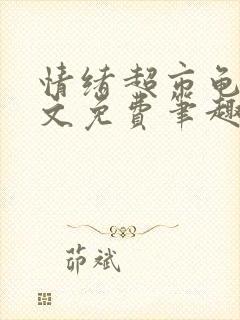 情绪超市龟
文免费笔趣
茆斌